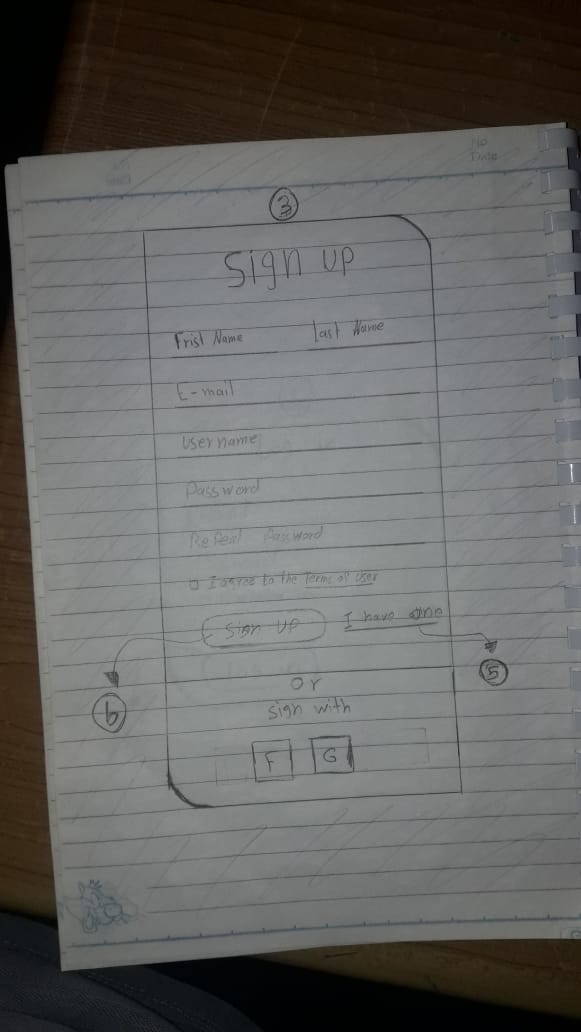 No
Date
3
Sign up
Frist Name Last Name
E-mail
Username
Password
RePeat Password
I agree to the Terms of User
Sign UP I have one
6 5
or
sign with
F G